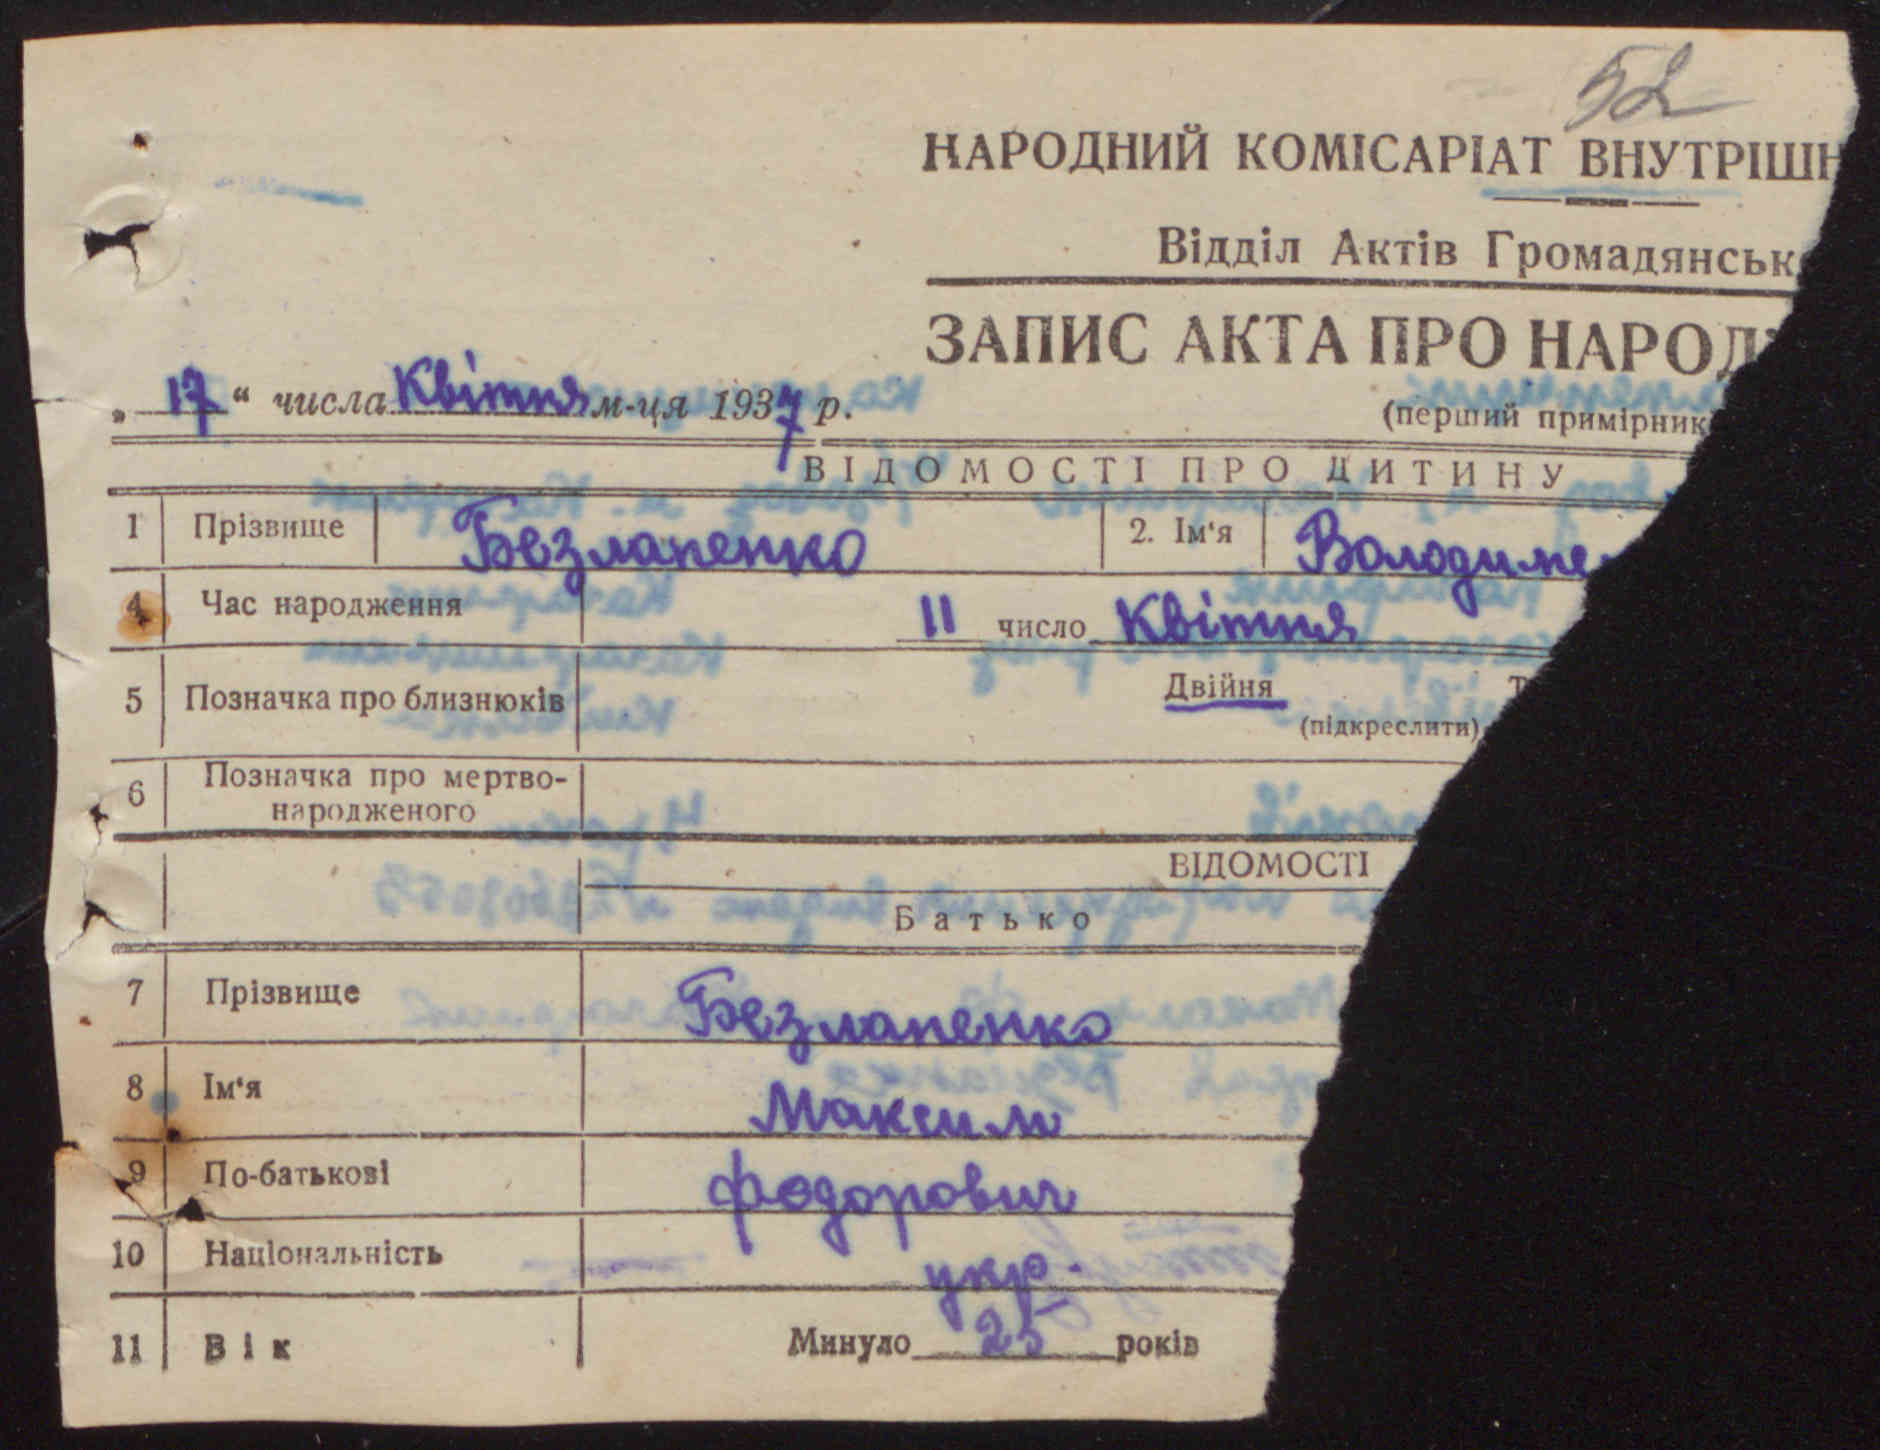 52
НАРОДНИЙ КОМІСАРІАТ ВНУТРІШН
Відділ Актів Громадянськ
ЗАПИС АКТА ПРО НАРОД
„ 17 “ числа Квітня м-ця 1937 р.
(перший примірник
ВІДОМОСТІ ПРО ДИТИНУ
1 Прізвище Безлапенко 2. Ім‘я Володиме
4 Час народження 11 число Квітня
5 Позначка про близнюків Двійня Т
(підкреслити)
6 Позначка про мертво-
народженого
ВІДОМОСТІ
Батько
7 Прізвище Безлапенко
8 Ім‘я Максим
9 По-батькові Фодорович
10 Національність укр.
11 Вік Минуло 25 років